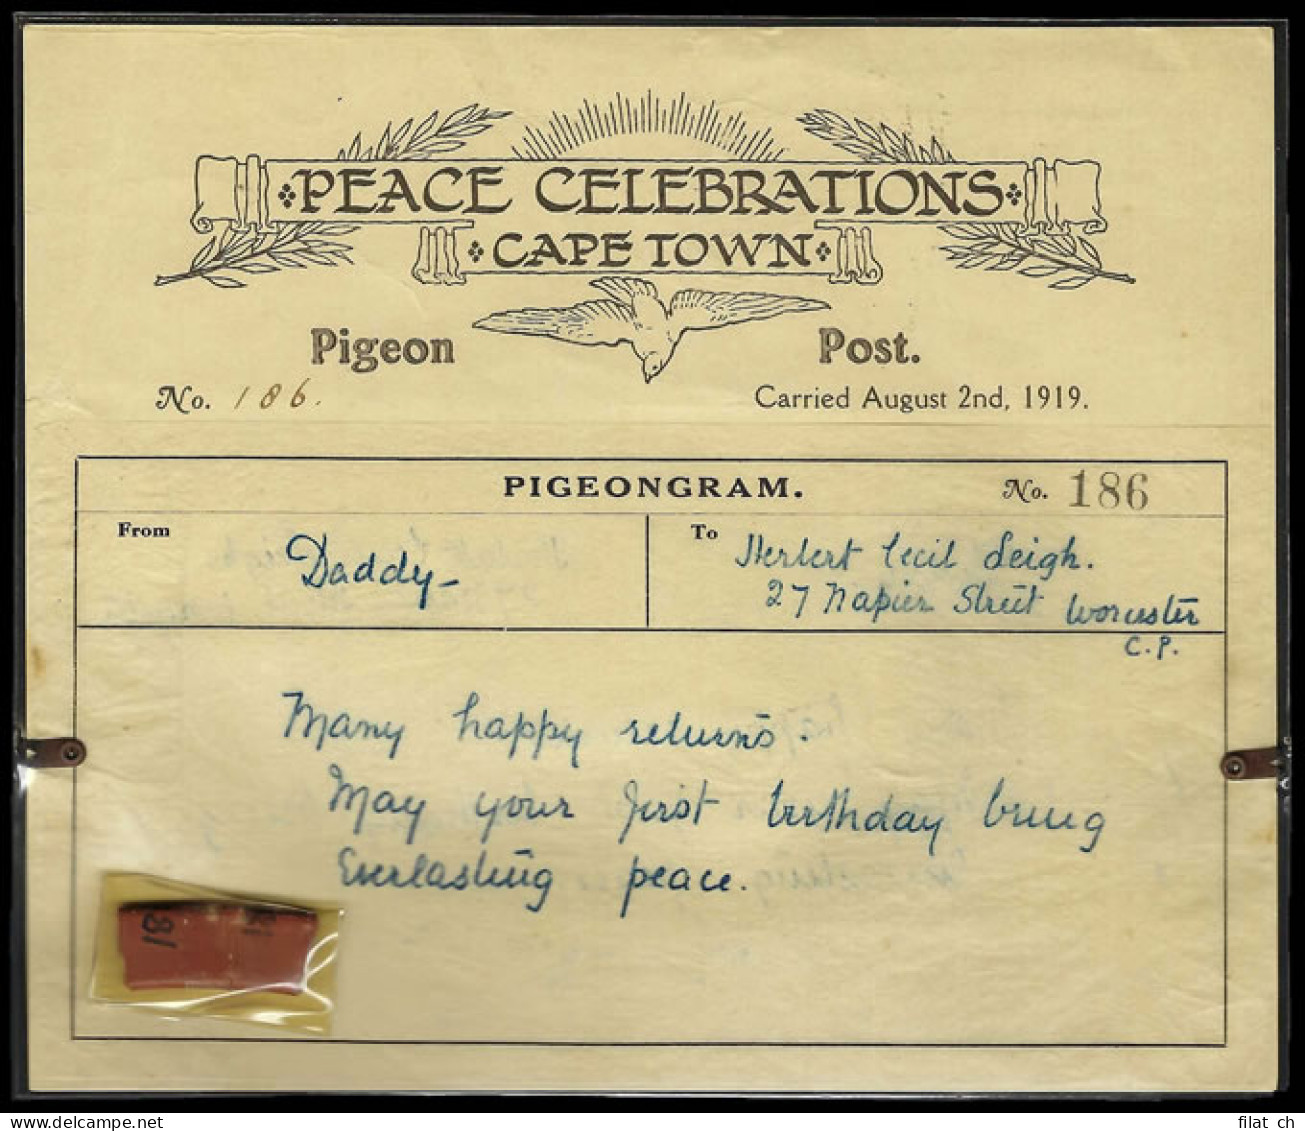 PEACE CELEBRATIONS
CAPE TOWN
Pigeon Post.
No. 186.
Carried August 2nd, 1919.
PIGEONGRAM.
No. 186
From
Daddy-
To
Herbert Cecil Leigh.
27 Napier Street Worcester
C.P.
Many happy returns.
May your first birthday bring
Everlasting peace.
81
81
filat ch